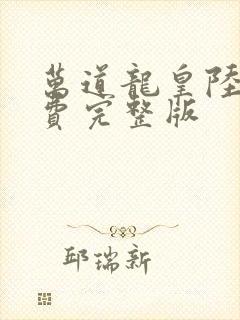 萬道龍皇陸
費完整版
邱瑞新